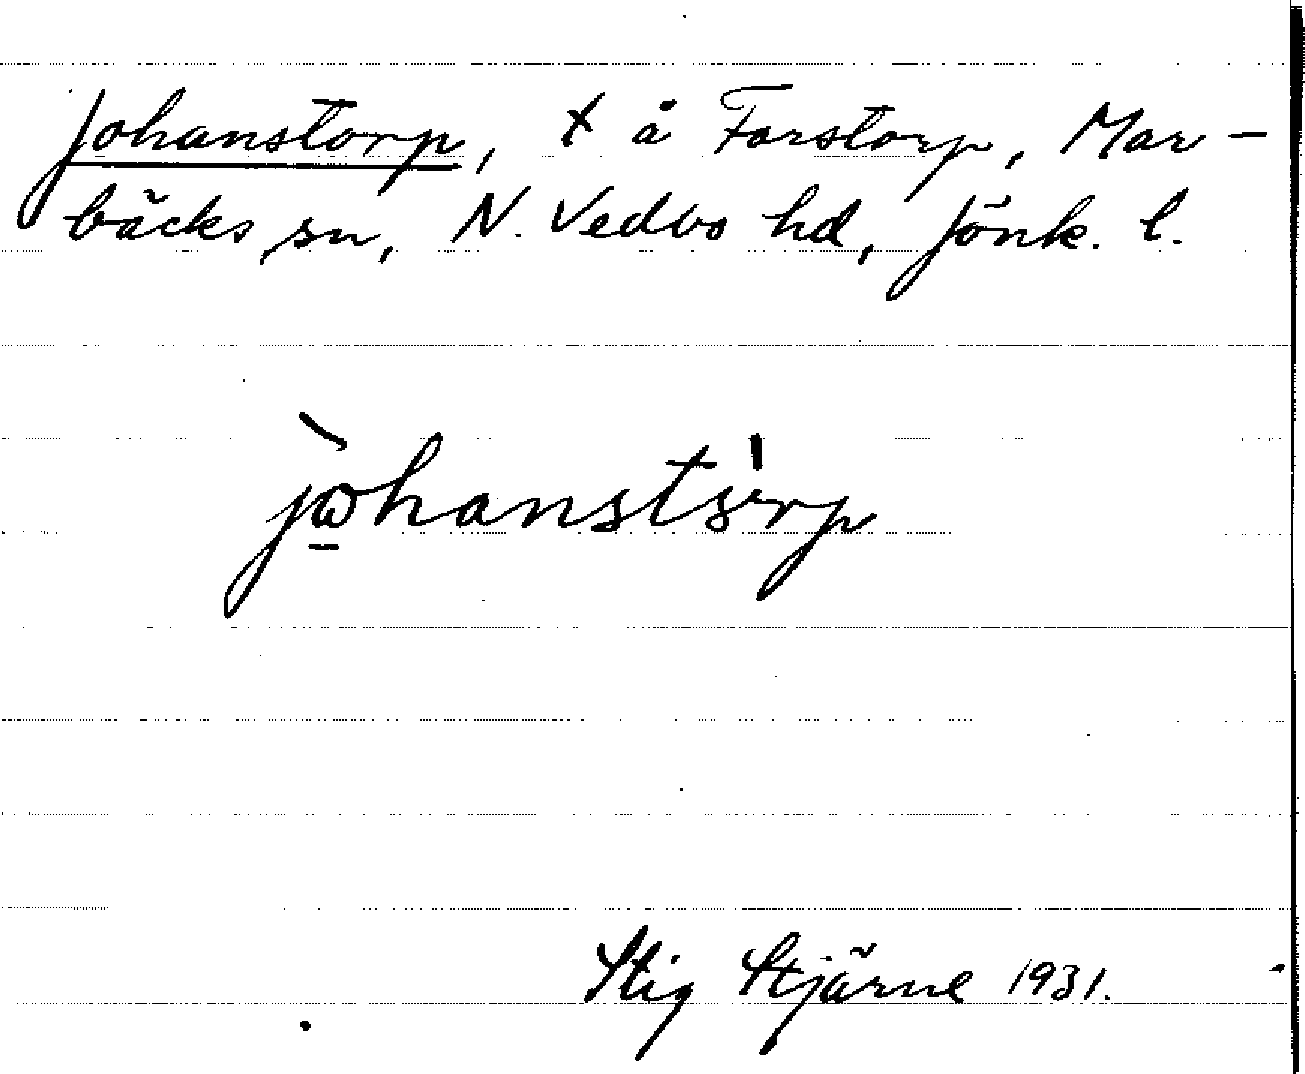 Johanstorp, t å Forstorp, Mar-
bäcks sn, N. Vedbo hd, Jönk. l.
jòhanstórp
Stig Stjärne 1931.